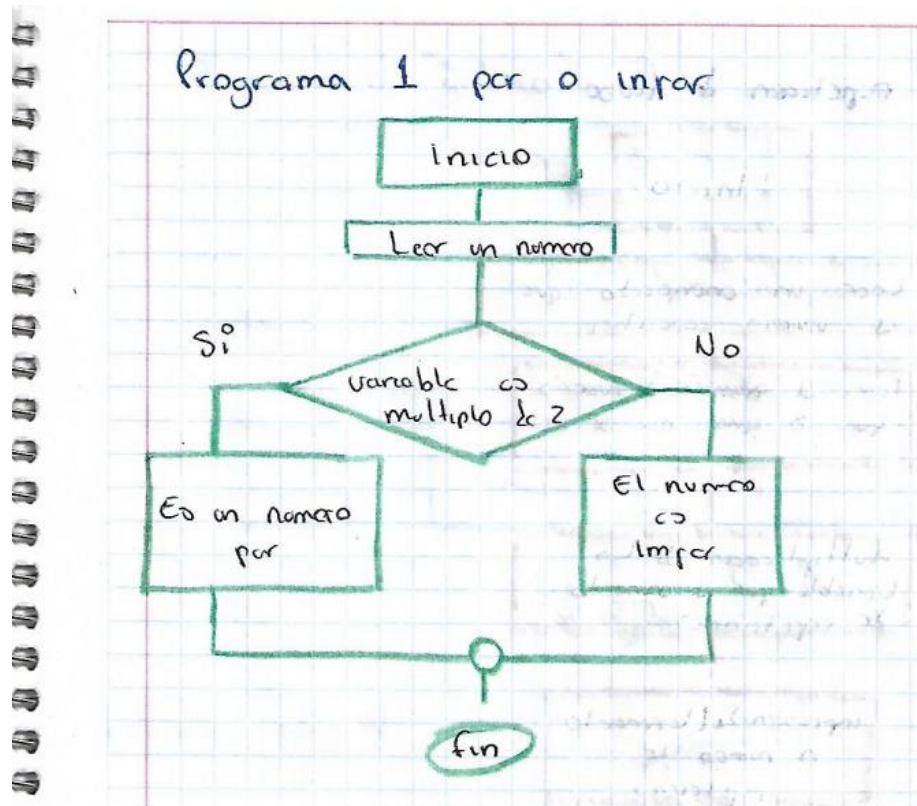 Programa 1 par o inpar
inicio
Leer un numero
Si
No
variable es
multiplo de 2
Es un numero
par
El numero
es
impar
fin